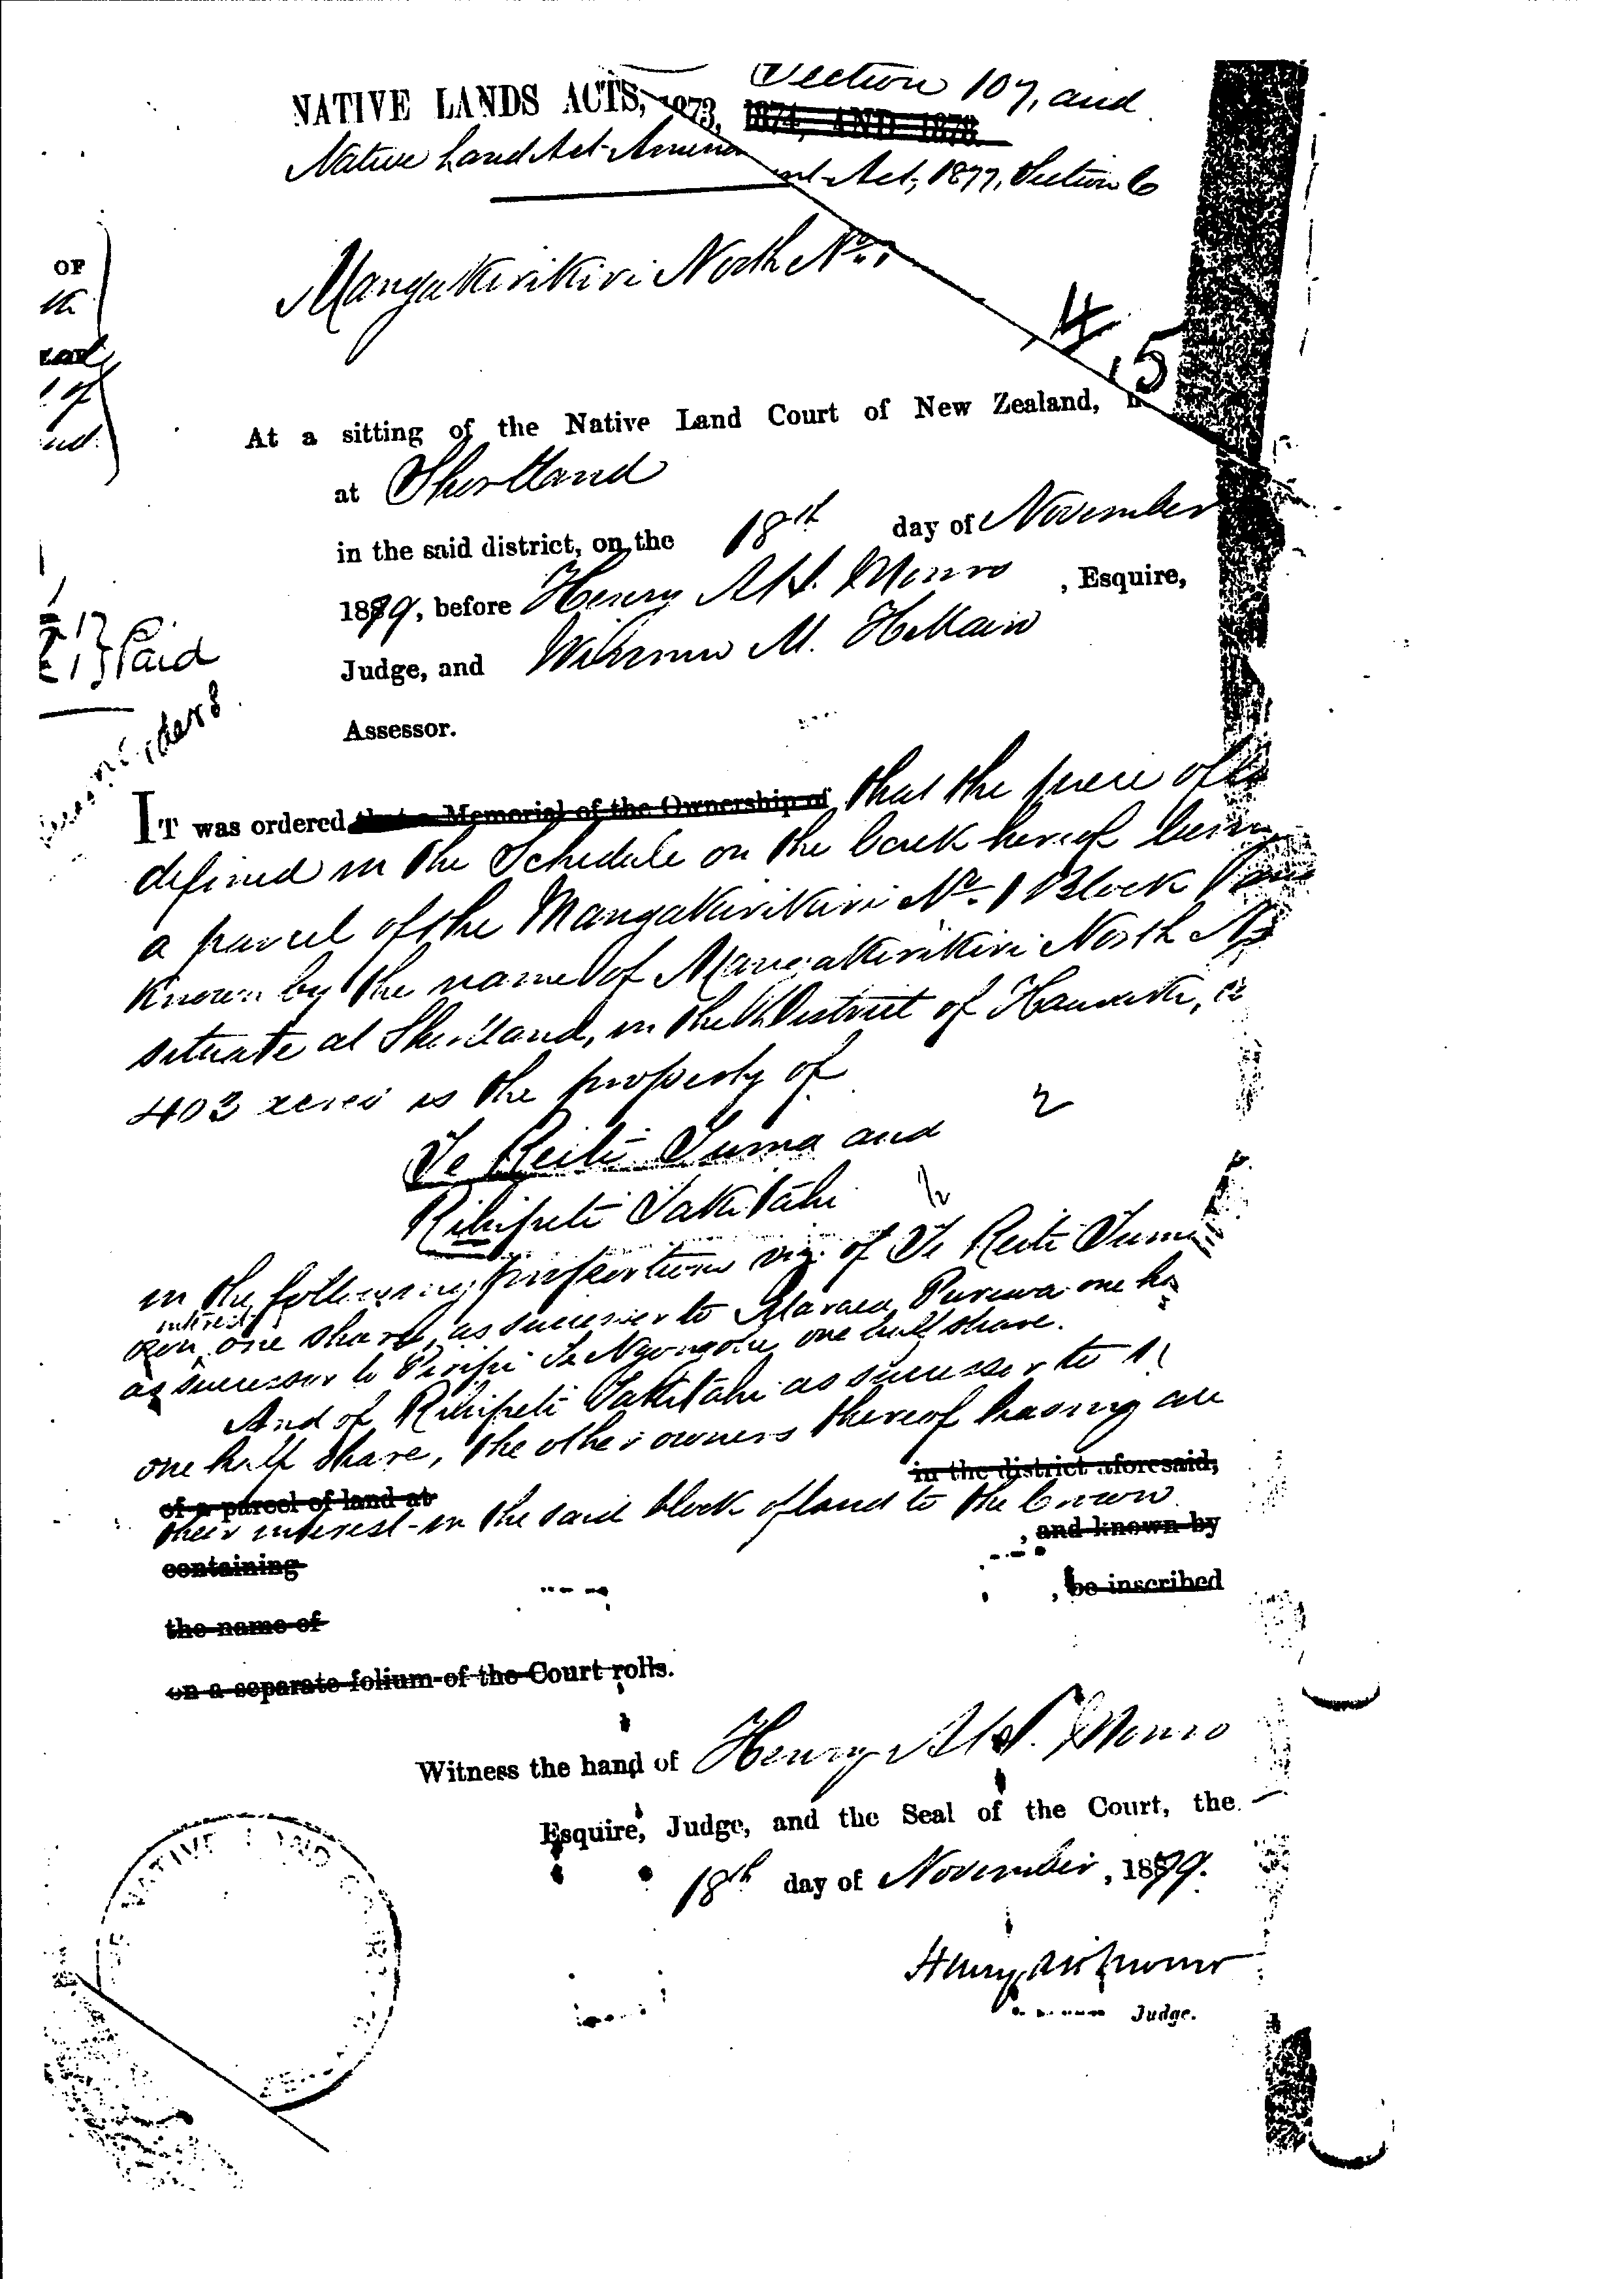 Section 107, and
NATIVE LANDS ACTS, 1873, 1874, AND 1878.
Native Land Act Amen nt Act, 1877, Section 6
Mangakirikiri North No. 1
OF
4
5
At a sitting of the Native Land Court of New Zealand,
at Shortland
in the said district, on the 18th day of November
1879, before Henry A. H. Monro, Esquire,
Judge, and M.
Paid
Assessor.
IT was ordered that a Memorial of the Ownership of that the piece of
defined in the Schedule on the back hereof being
a parcel of the Mangakirikiri No. 1 Block
known by the name of Mangakirikiri North No
situate at Shortland, in the District of Hauraki,
403 acres is the property of
2
Te Reiti Tuma and
Rihipeti Takitahi ½
in the following proportions viz. of Te Reiti Tuma
interest
own one share, as successor to Purewa one
as successor to Piripi Te one half share.
And of Rihipeti Takitahi as successor to
one half share, the other owners thereof having
in the district aforesaid;
of a parcel of land at
their interest in the said block of land to the Crown
, and known by
containing
, be inscribed
the name of
on a separate folium of the Court rolls.
Witness the hand of Henry A. H. Monro
Esquire, Judge, and the Seal of the Court, the
18th day of November, 1879.
Henry A H Monro
Judge.
NATIVE LAND COURT